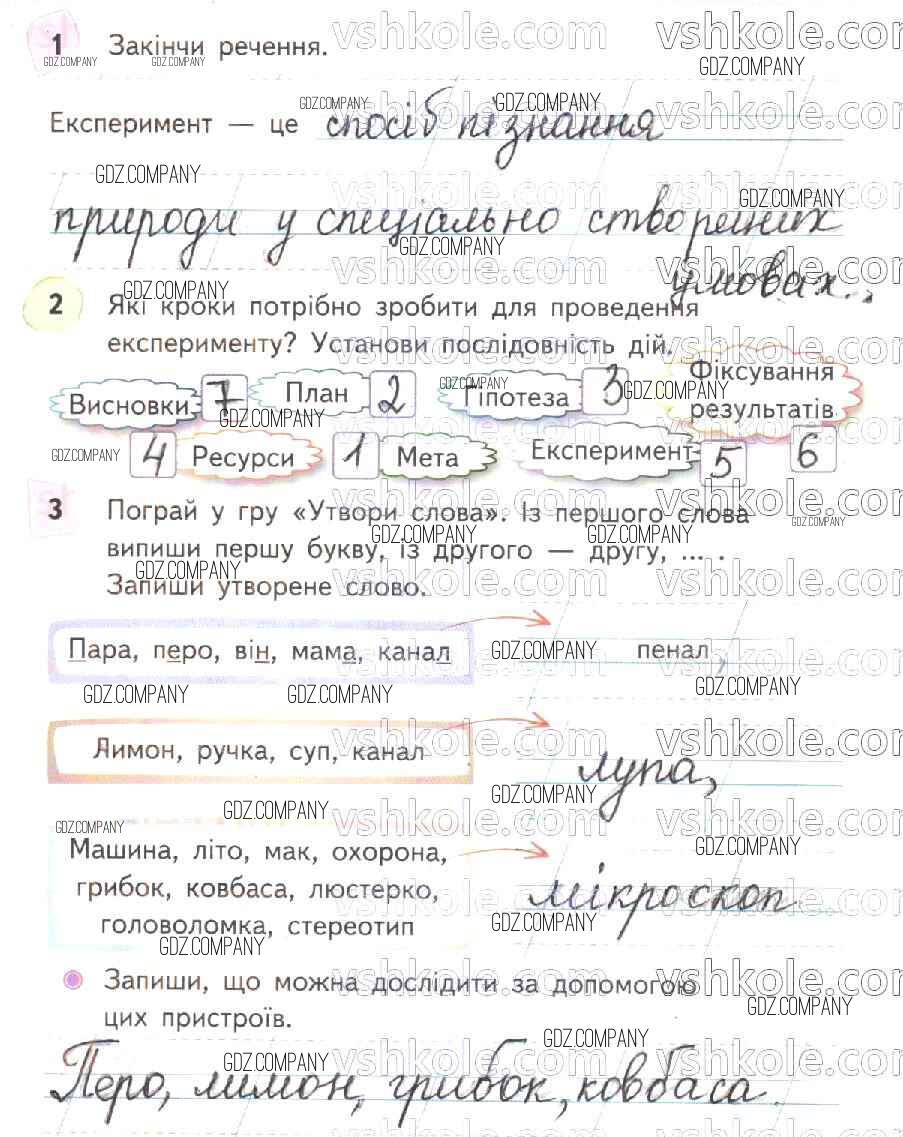 1 Закінчи речення.
Експеримент — це спосіб пізнання
природи у спеціально створених
умовах.
2 Які кроки потрібно зробити для проведення
експерименту? Установи послідовність дій.
Висновки 7 План 2 Гіпотеза 3 Фіксування
результатів 6
4 Ресурси 1 Мета Експеримент 5
3 Пограй у гру «Утвори слова». Із першого слова
випиши першу букву, із другого — другу, ... .
Запиши утворене слово.
Пара, перо, він, мама, канал пенал,
Лимон, ручка, суп, канал
лупа,
Машина, літо, мак, охорона,
грибок, ковбаса, люстерко,
головоломка, стереотип
мікроскоп
Запиши, що можна дослідити за допомогою
цих пристроїв.
Перо, лимон, грибок, ковбаса.
vshkole.com
GDZ.COMPANY